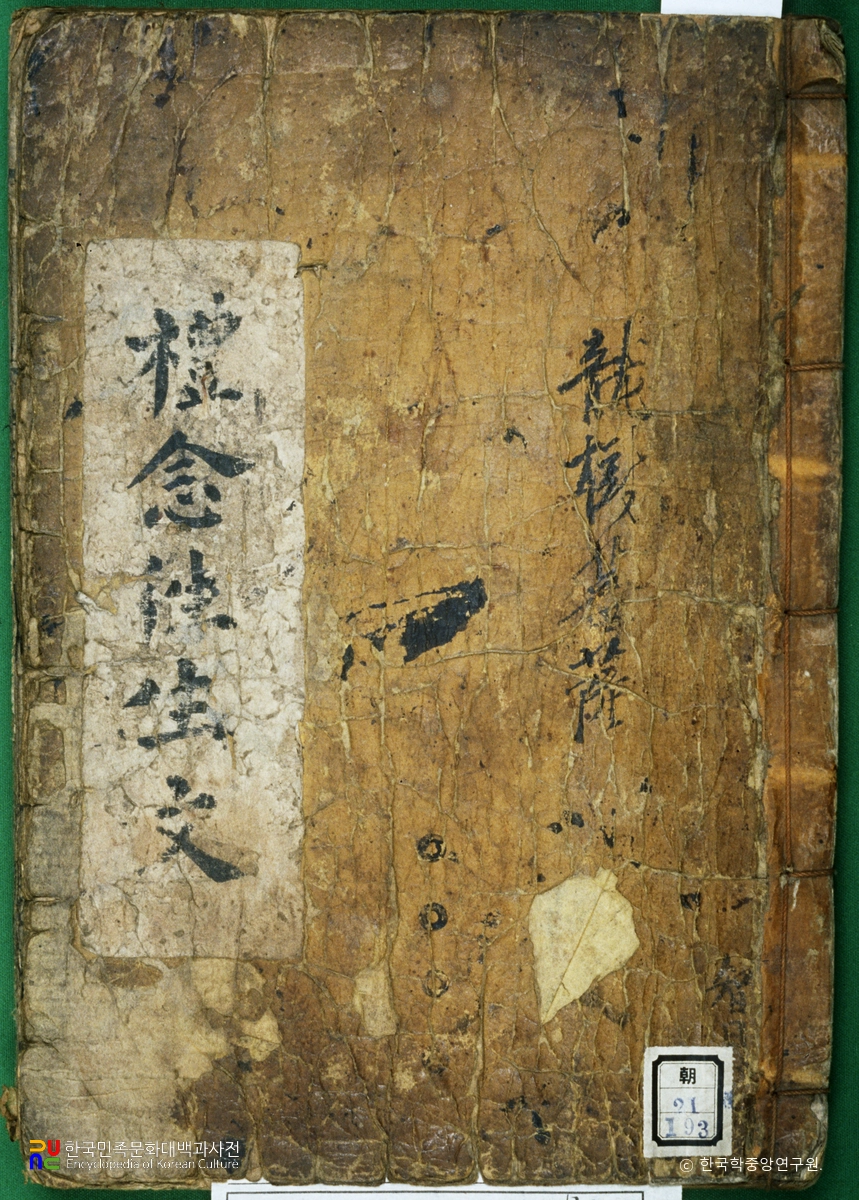 禮念往生文
龍樹菩薩
朝
21
193
한국민족문화대백과사전
Encyclopedia of Korean Culture
© 한국학중앙연구원.